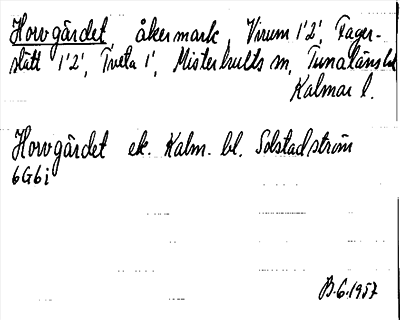 Horvgärdet åkermark, Virum 1'2', Fager-
slätt 1'2', Tveta 1', Misterhults sn, Tunaläns hd
Kalmar l.
Horvgärdet ek. Kalm. bl. Solstadström
6G6i
B.6.1957